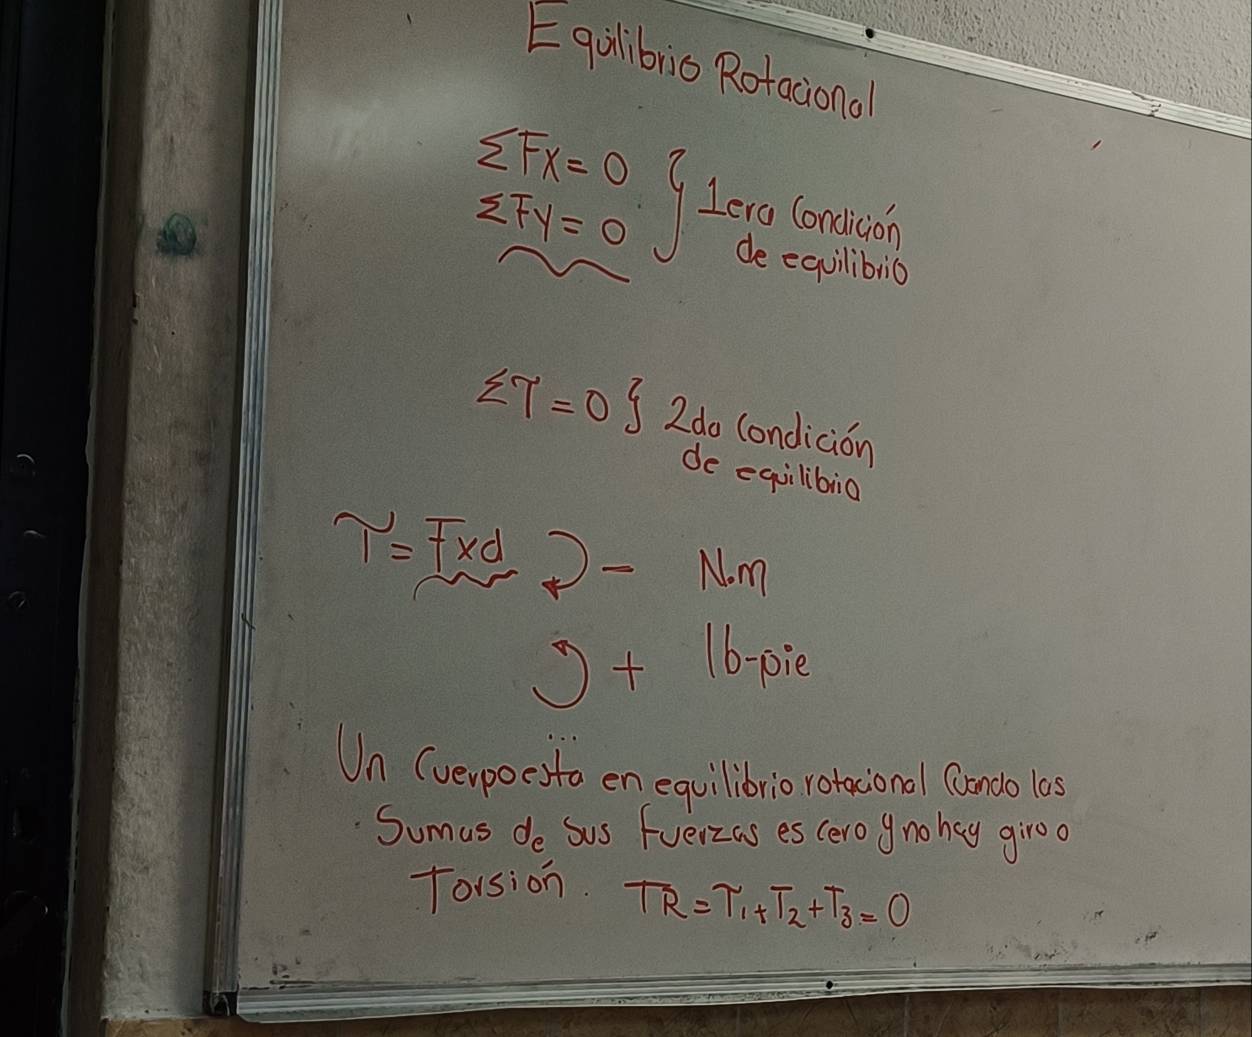 Equilibrio Rotacional
ΣFx = 0
ΣFy = 0
} 1era Condición
de equilibrio
Στ = 0 } 2da Condición
de equilibrio
τ = Fxd ↻ - N.m
↺ + lb-pie
Un Cuerpo esta en equilibrio rotacional Cuando las
Sumas de sus fuerzas es cero y no hay giro o
Torsión. TR = T₁ + T₂ + T₃ = 0